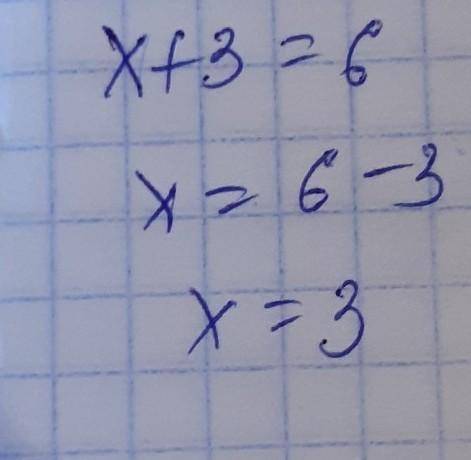 x+3=6
x=6-3
x=3